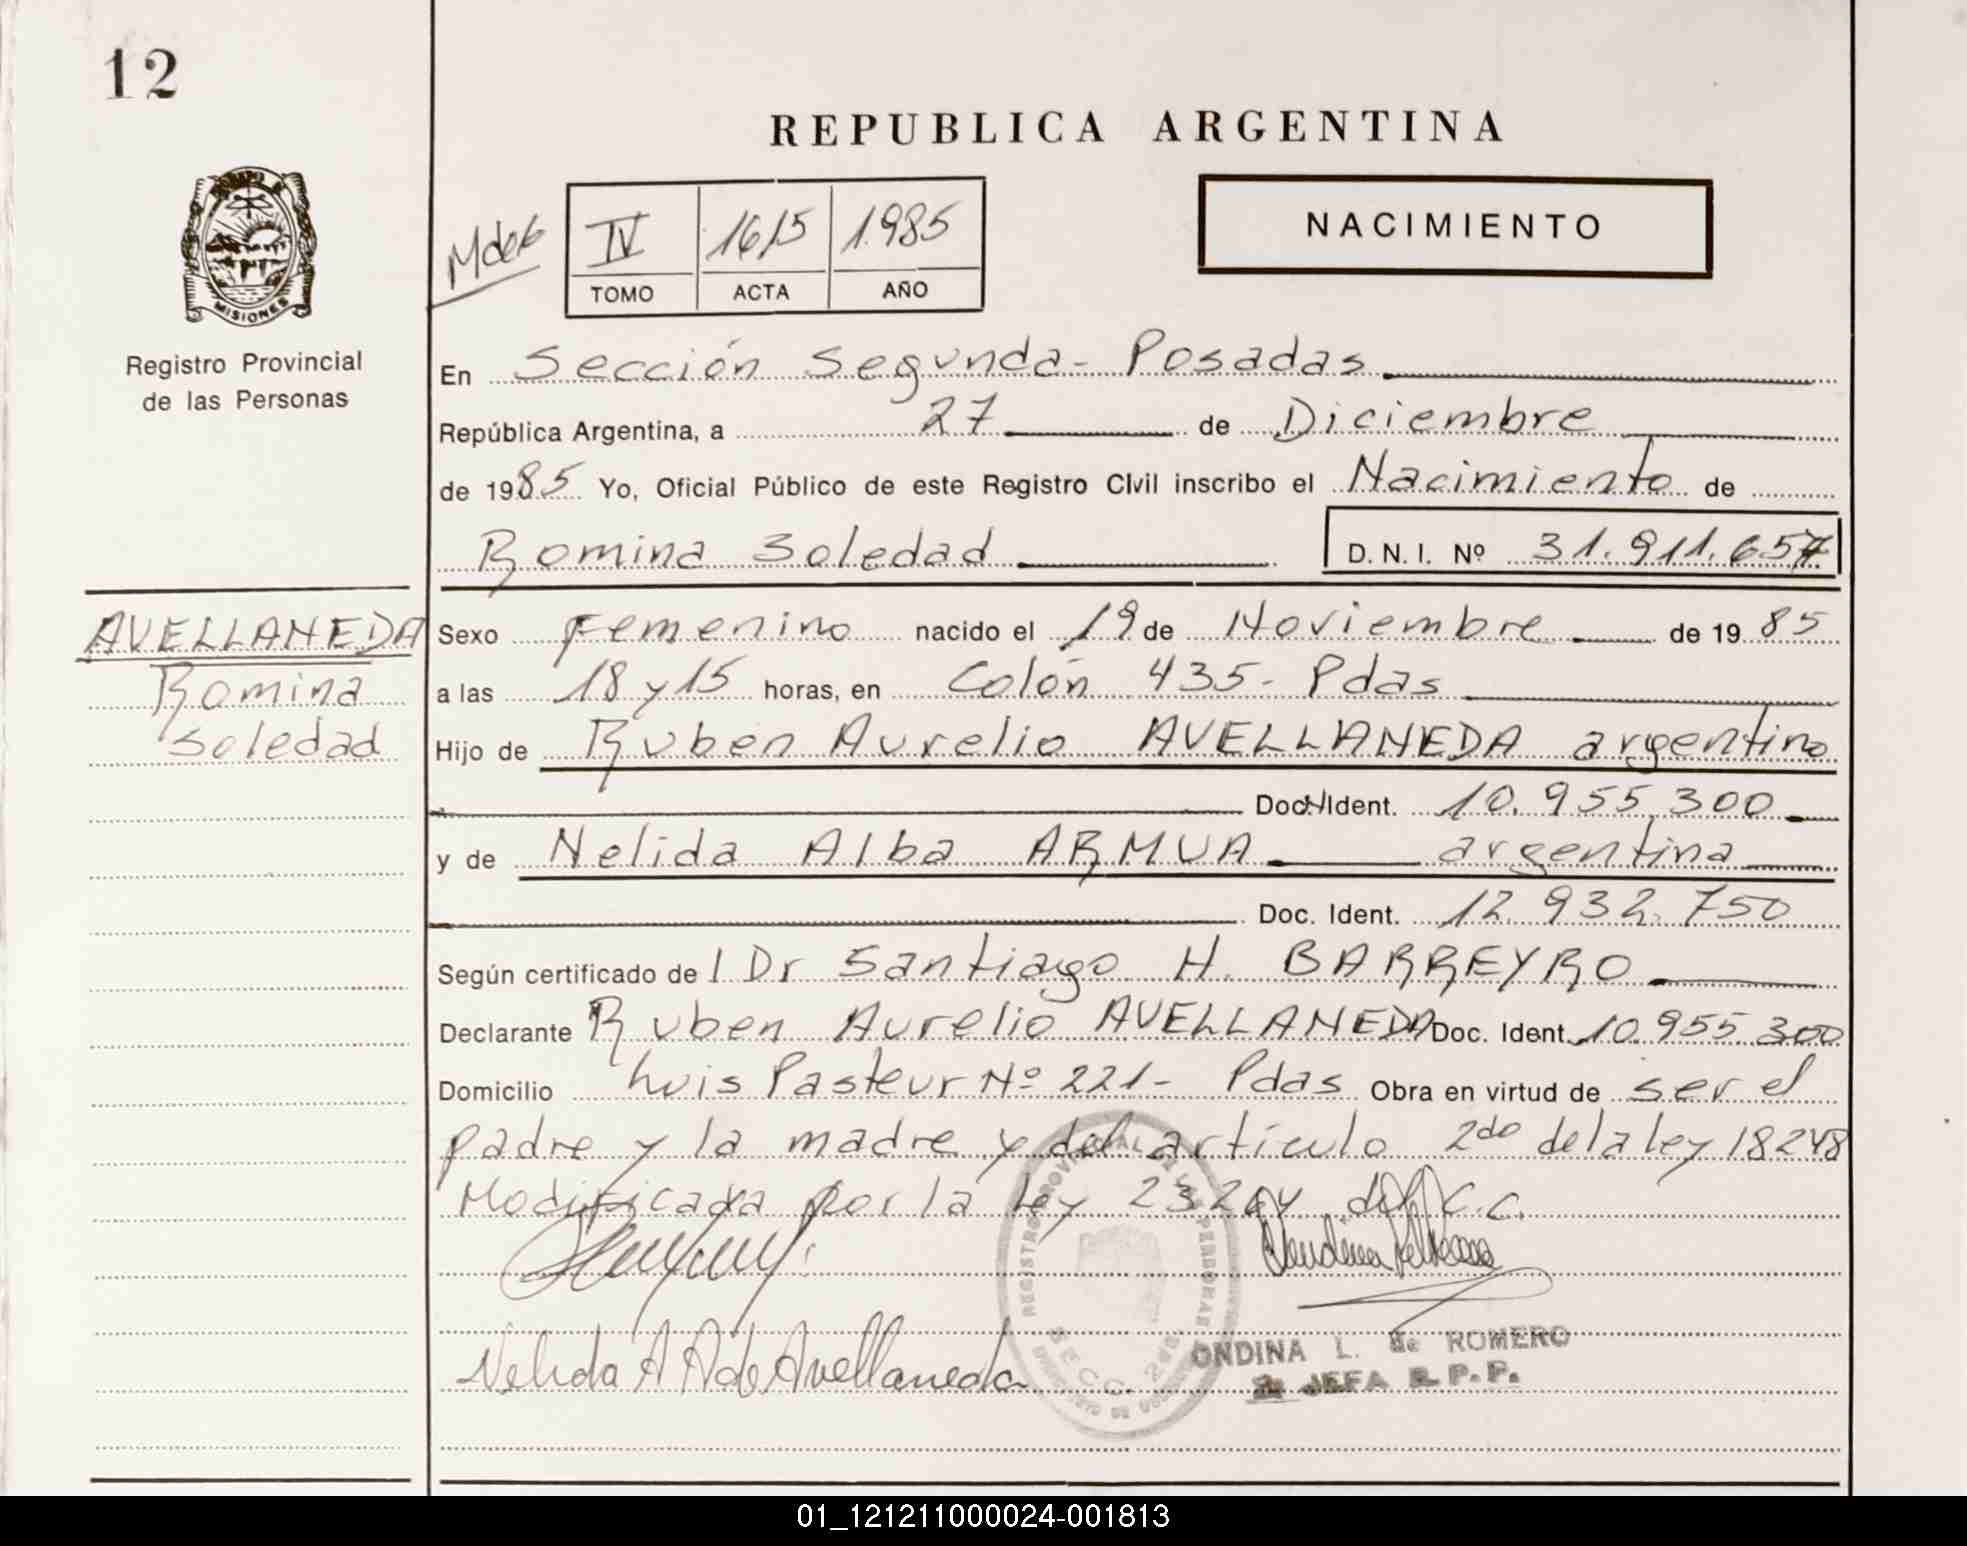 12
REPUBLICA ARGENTINA
NACIMIENTO
IV 1615 1985
TOMO ACTA AÑO
MISIONES
Registro Provincial
de las Personas
En Sección Segunda - Posadas
República Argentina, a 27 de Diciembre
de 1985 Yo, Oficial Público de este Registro Civil inscribo el Nacimiento de
Romina Soledad D. N. I. Nº 31.911.657
AVELLANEDA
Romina
Soledad
Sexo Femenino nacido el 19 de Noviembre de 19 85
a las 18 y 15 horas, en Colón 435 - Pdas
Hijo de Ruben Aurelio AVELLANEDA argentino
Doc. Ident. 10.955.300
y de Nelida Alba ARMUA argentina
Doc. Ident. 12.932.750
Según certificado de l Dr Santiago H. BARREYRO
Declarante Ruben Aurelio AVELLANEDA Doc. Ident. 10.955.300
Domicilio Luis Pasteur Nº 221 - Pdas Obra en virtud de ser el
padre y la madre y del artículo 2do de la ley 18248
Modificada por la Ley 23264 del C.C.
Nelida A A de Avellaneda
REGISTRO PROVINCIAL DE LAS PERSONAS
SECC. 2da
ONDINA L. de ROMERO
JEFA R.P.P.
01_121211000024-001813